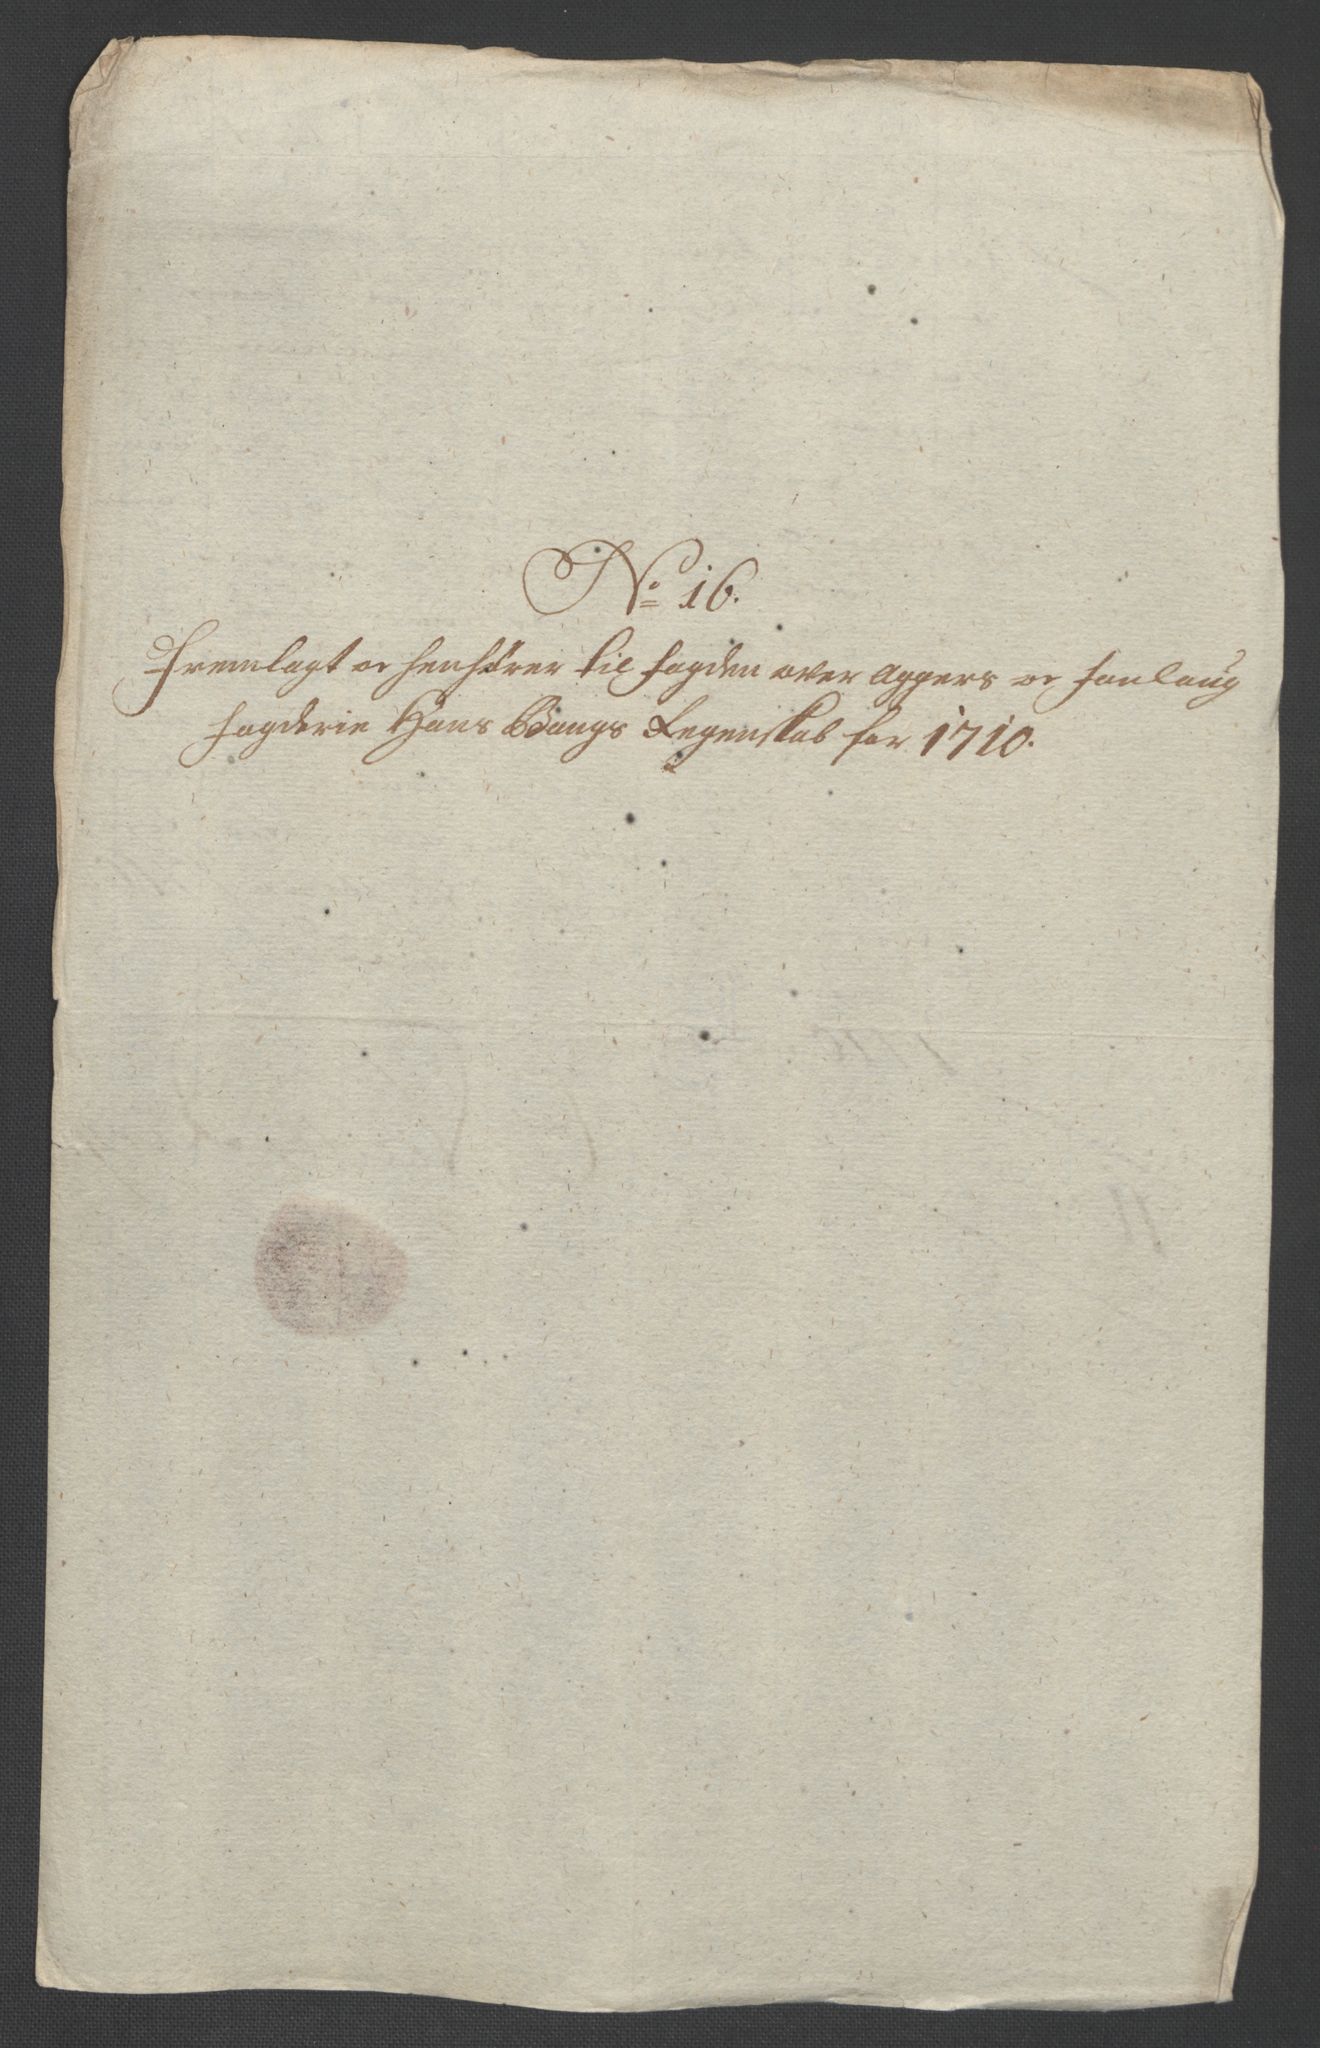 No 16.
Fremlagt oc henhører til fogden over Aggers oc folloug
fogderie Hans Bangs Regenskab for 1710.